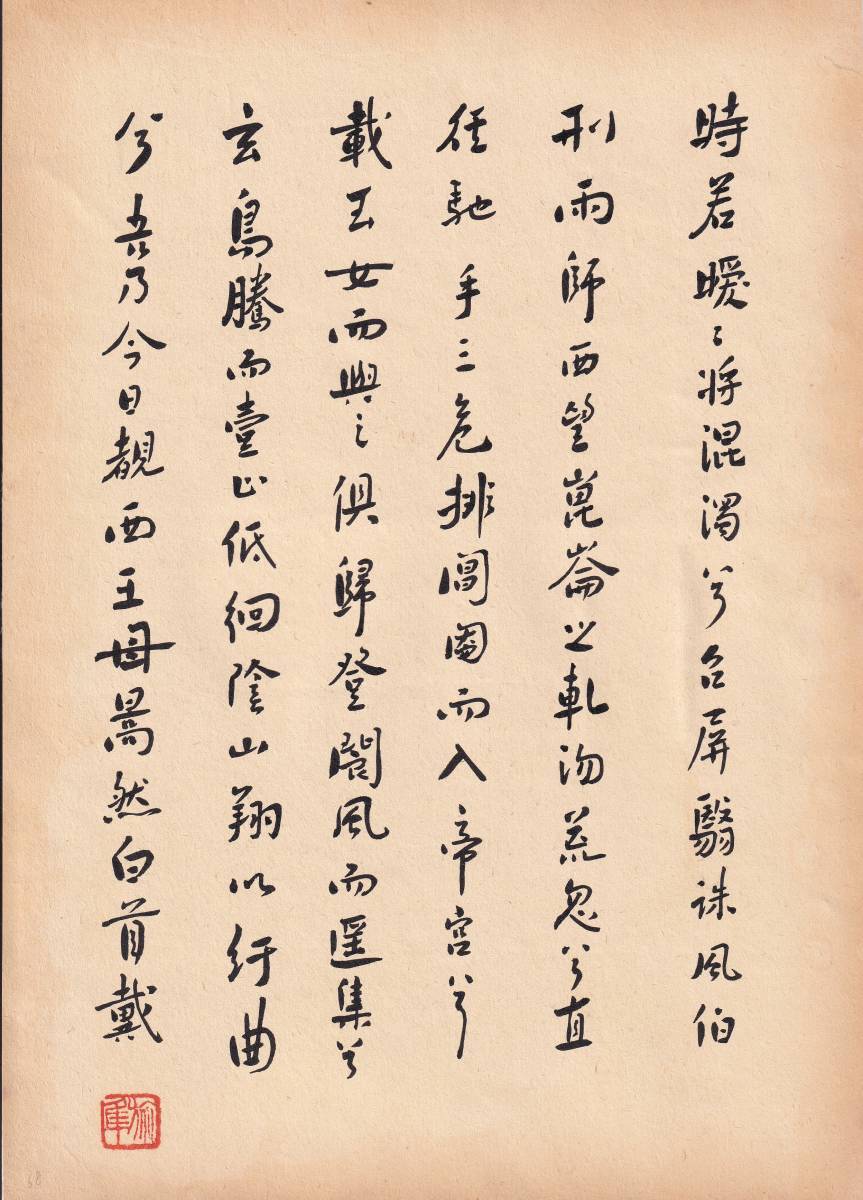 時若曖〻将混濁兮召屏翳誅風伯
刑雨師西望崑崙之軋沕荒忽兮直
徑馳乎三危排閶闔而入帝宮兮
載玉女而與之俱歸登閬風而遥集兮
玄鳥騰而壹止低徊陰山翔以紆曲
兮吾乃今日覩西王母暠然白首戴